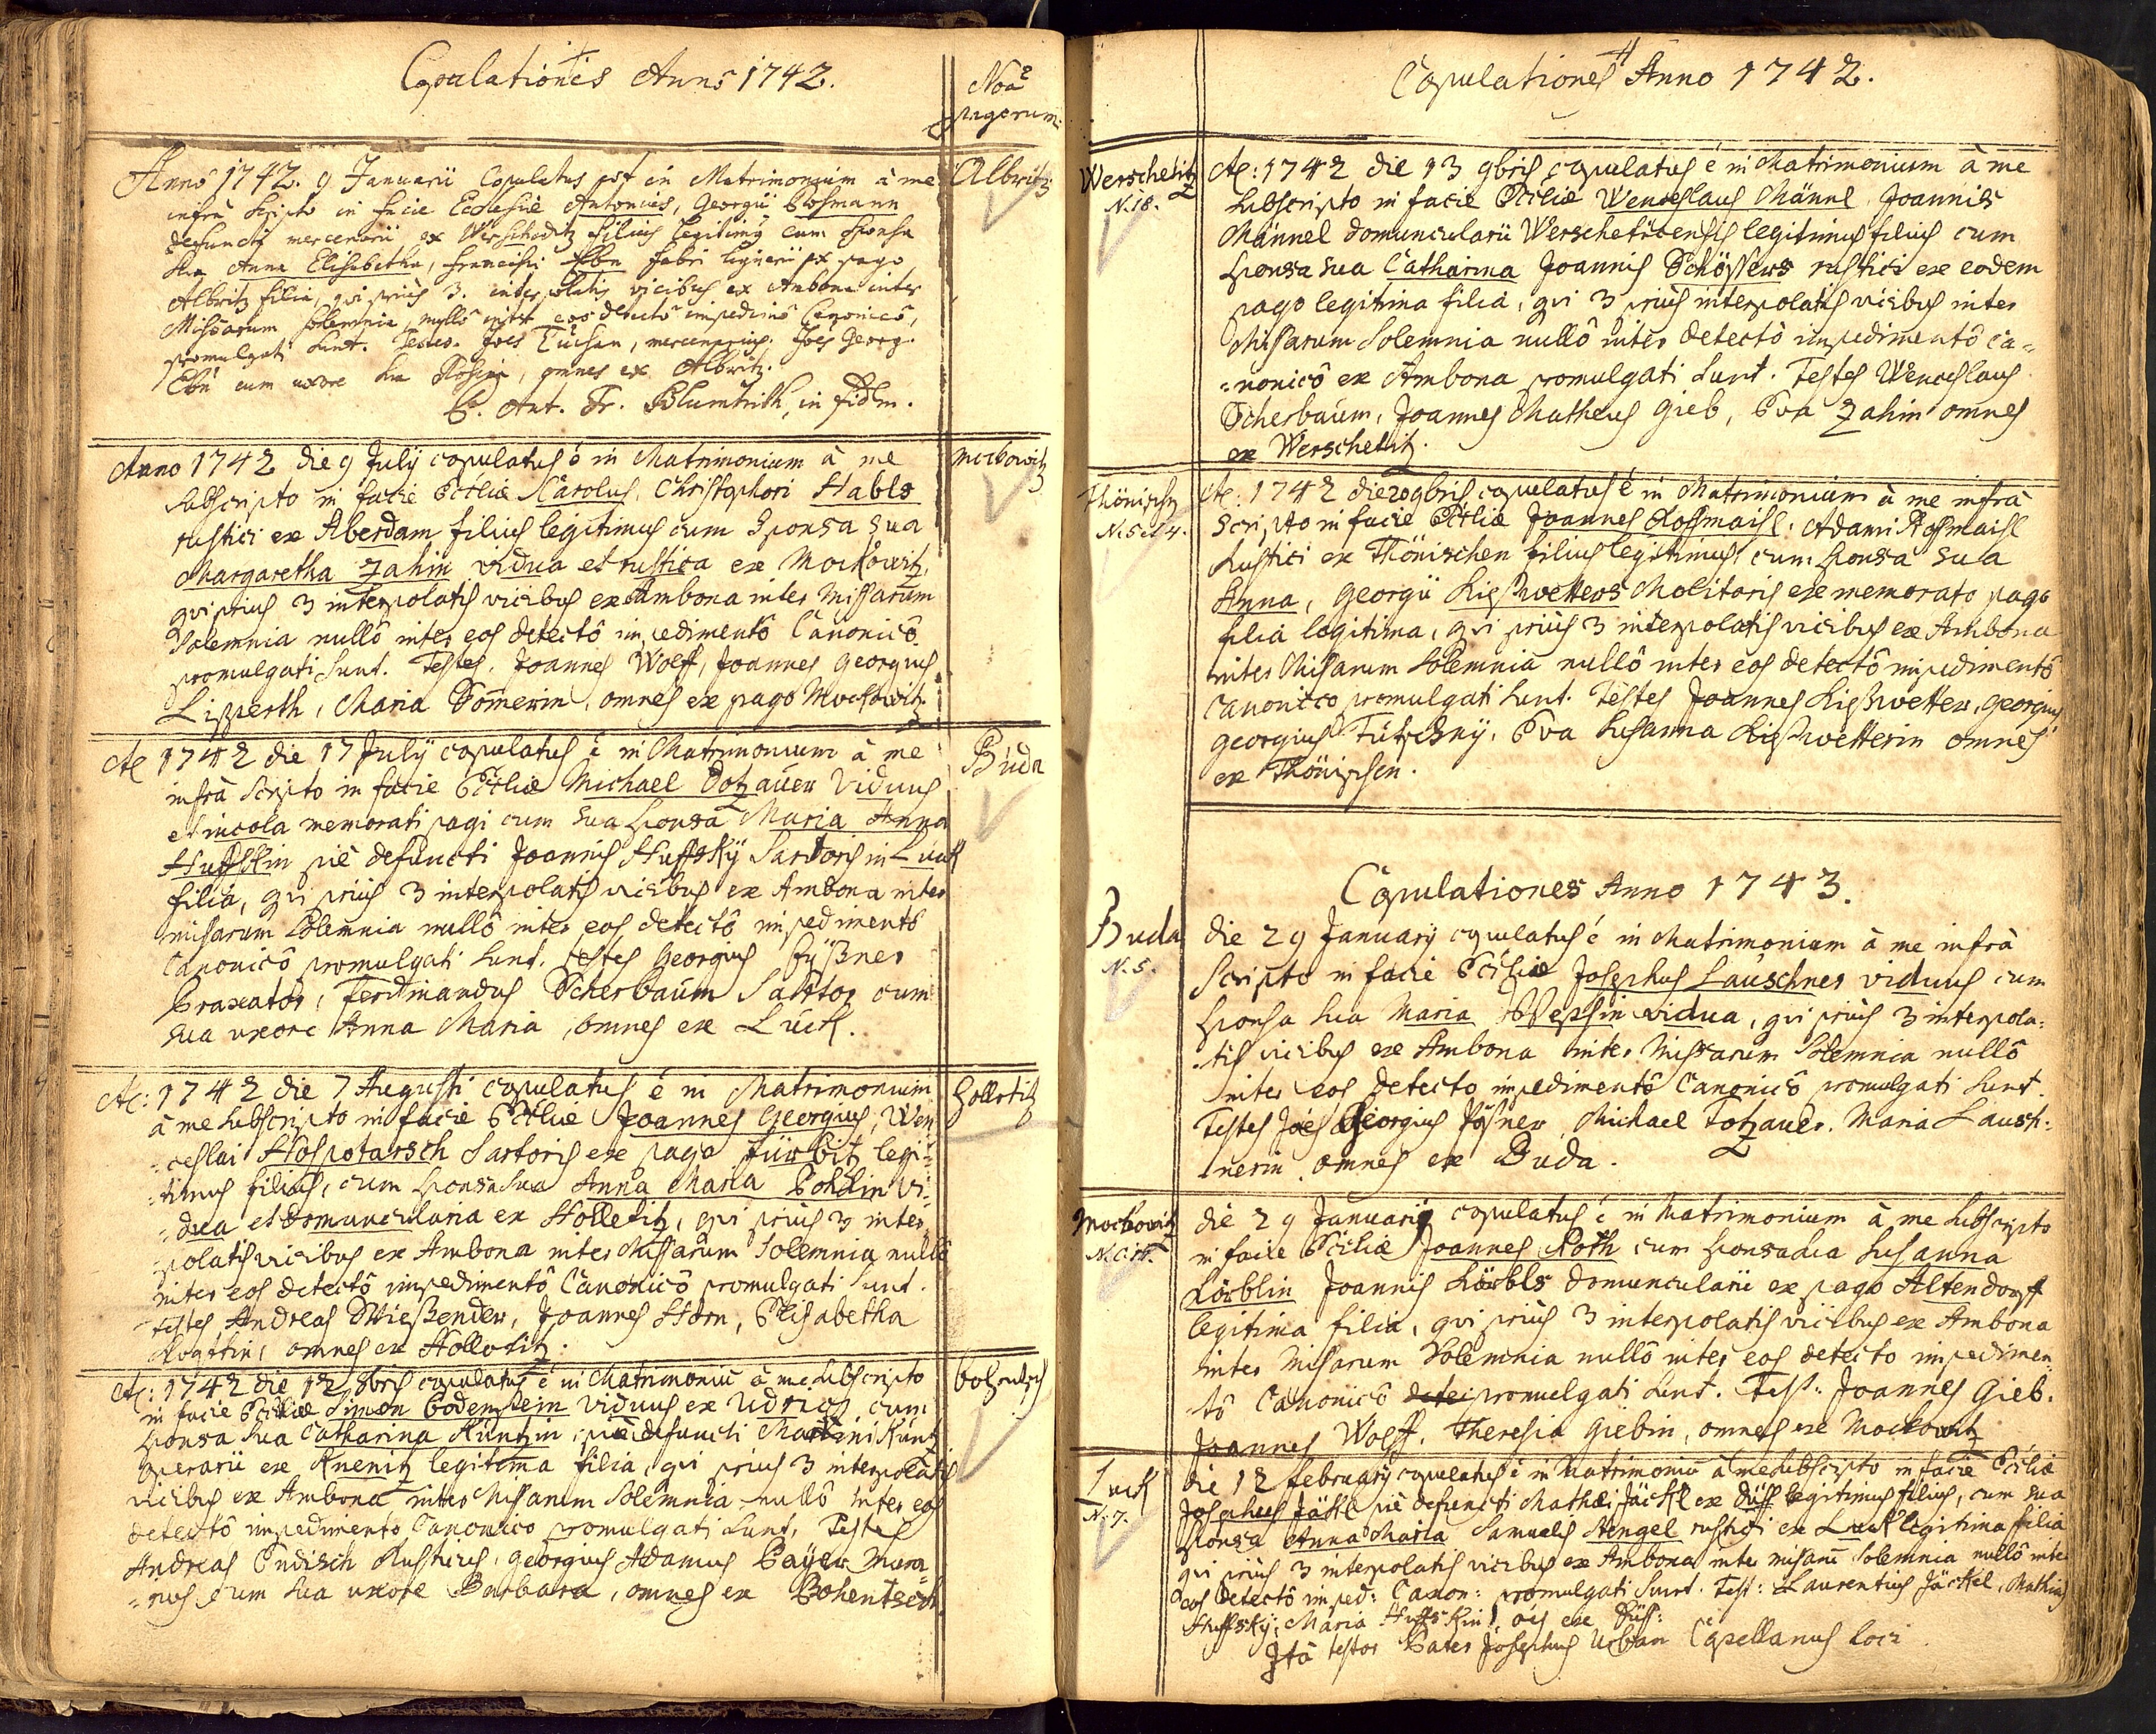 Copulationes Anno 1742.
Noã
pagorum
Anno 1742. 9 Januarii Copulatus est in Matrimonium à me
Albritz
infra scripto in facie Ecclesiæ Antonius, Georgii
defuncti mercenarii ex filius legitimus cum sponsa
sua Anna Elisabetha, Francisci Ebn fabri lignarii ex pago
Albritz filia, qui prius 3. interpolatis vicibus ex Ambona inter
Missarum solemnia, nullô inter eos detectô impedimô Canonicô,
promulgati sunt. Testes. Joes Tuchan, mercenarius. Joes Georg.
Ebn cum uxore sua Rosina, omnes ex Albritz.
P. Ant. Fr. Blumtritth, in fidem.
Anno 1742 die 9 July copulatus ê in Matrimonium à me
Mockowitz
subscripto in facie Ecclíæ Carolus, Christophori Habls
rustici ex Aberdam filius legitimus cum Sponsa sua
Margaretha Zahin vidua et rustica ex Mockowitz,
qui prius 3 interpolatis vicibus ex Ambona inter Missarum
Solemnia nullô inter eos detectô impedimentô Canonicô
promulgati sunt. Testes. Joannes Wolff, Joannes Georgius
Lipperth, Maria Somerin, omnes ex pago Mockowitz.
Aō 1742 die 17 July copulatus ê in Matrimonium à me
Buda
infrà Scripto in facie Ecclíæ Michael Dotzauer Viduus
et incola memorati pagi cum sua sponsa Maria Anna
Huffskin piè defuncti Joannis Huffskÿ Sartoris in Luck
filia, qui prius 3 interpolatis vicibus ex Ambona inter
missarum Solemnia nullô inter eos detectô impedimentô
Canonicô promulgati sunt. testes Georgius
Braxator, Ferdinandus Scherbaum Sartor cum
sua uxore Anna Maria, omnes ex Luck.
Aō: 1742 die 7 Augusti copulatus ê in Matrimonium
Hollotitz
à me subscripto in facie Ecclíæ Joannes Georgius, Wen
ceslai Hospotarsch Sartoris ex pago Fürbitz legi-
timus filius, cum sponsa sua Anna Maria Pohlin vi-
dua et domuncularia ex Holletitz, qui prius 3 inter
polatis vicibus ex Ambona inter Missarum Solemnia nullô
inter eos detectô impedimentô Canonicô promulgati sunt.
testes Andreas Joannes Horn, Elisabetha
omnes ex Hollotitz.
Aō: 1742 die 12 8bris copulatus ê in Matrimoniū à me subscripto
Bohentsch
in facie Ecclíæ Simon Bodenstein viduus ex Udrics cum
sponsa sua Catharina Küntzin, piè defuncti Martini Küntz
operarii ex Knenitz legitima filia, qui prius 3 interpolatis
vicibus ex Ambona inter Missarum Solemnia nullô inter eos
detectô impedimento Canonico promulgati sunt, Testes
Andreas Endisch Rusticus, Georgius Adamus Bayer Mura-
rius cum sua uxore Barbara, omnes ex Bohentsch.
Copulationes Anno 1742.
Werschetitz
N. 18.
Aō: 1742 die 13 9bris copulatus ê in Matrimonium à me
subscripto in facie Ecclíæ Wenceslaus Männl, Joannis
Männel domuncularii Werschetitensis legitimus filius cum
sponsa sua Catharina Joannis Schössers rustici ex eodem
pago legitima filia, qui 3 prius interpolatis vicibus inter
Missarum Solemnia nullô inter detectô impedimentô ca-
nonicô ex Ambona promulgati sunt. Testes Wenceslaus
Scherbaum, Joannes Matheus Gieb, Eva Zahin omnes
ex Werschetitz.
Thönischn
N. 5 et 4.
Aō: 1742 die 20 9bris copulatus ê in Matrimonium à me infrà
scripto in facie Ecclíæ Joannes Kossmaisl, Adami Kossmaisl
Rustici ex Thönischen filius legitimus, cum sponsa sua
Anna, Georgii Kießwetters Molitoris ex memorato pago
filia legitima, qui prius 3 interpolatis vicibus ex Ambona
inter Missarum Solemnia nullô inter eos detectô impedimentô
Canonico promulgati sunt. Testes Joannes Kießwetter, Georgius
Georgius Eva Susanna Kießwetterin omnes
ex Thönischen.
Copulationes Anno 1743.
Buda
N. 5.
die 29 January copulatus ê in Matrimonium à me infrà
Scripto in facie Ecclíæ Josephus Lauschner viduus cum
sponsa sua Maria vidua, qui prius 3 interpola-
tis vicibus ex Ambona inter Missarum Solemnia nullô
inter eos detecto impedimentô Canonicô promulgati sunt.
Testes Joēs Georgius Michael Totzauer. Maria Lausch-
nerin omnes ex Buda.
Mockowitz
die 29 January copulatus ê in Matrimonium à me subscripto
in facie Ecclíæ Joannes Roth cum sponsa sua Susanna
Lörblin Joannis Lörbls domuncularii ex pago Altendorff
legitima filia, qui prius 3 interpolatis vicibus ex Ambona
inter Missarum Solemnia nullô inter eos detecto impedimen
tô Canonicô promulgati sunt. Test: Joannes Gieb.
Joannes Wolff. Theresia Giebin, omnes ex Mockowitz
Luck
N. 7.
die 12 February copulatus ê in Matrimoniū à me subscripto in facie Ecclíæ
Josephus Jäckl piè defuncti Mathæi Jäckl ex Düff legitimus filius, cum sua
sponsa Anna Maria Samuelis Stengel rustici ex Luck legitima filia
qui prius 3 interpolatis vicibus ex Ambona inter missarū Solemnia nullô inter
eos detectô imped: Canon: promulgati sunt. Test: Laurentius Jäckel, Mathias
Huffskÿ, Maria Huffskin, oēs ex Düff:
Ità testor Pater Josephus Urban Capellanus loci.